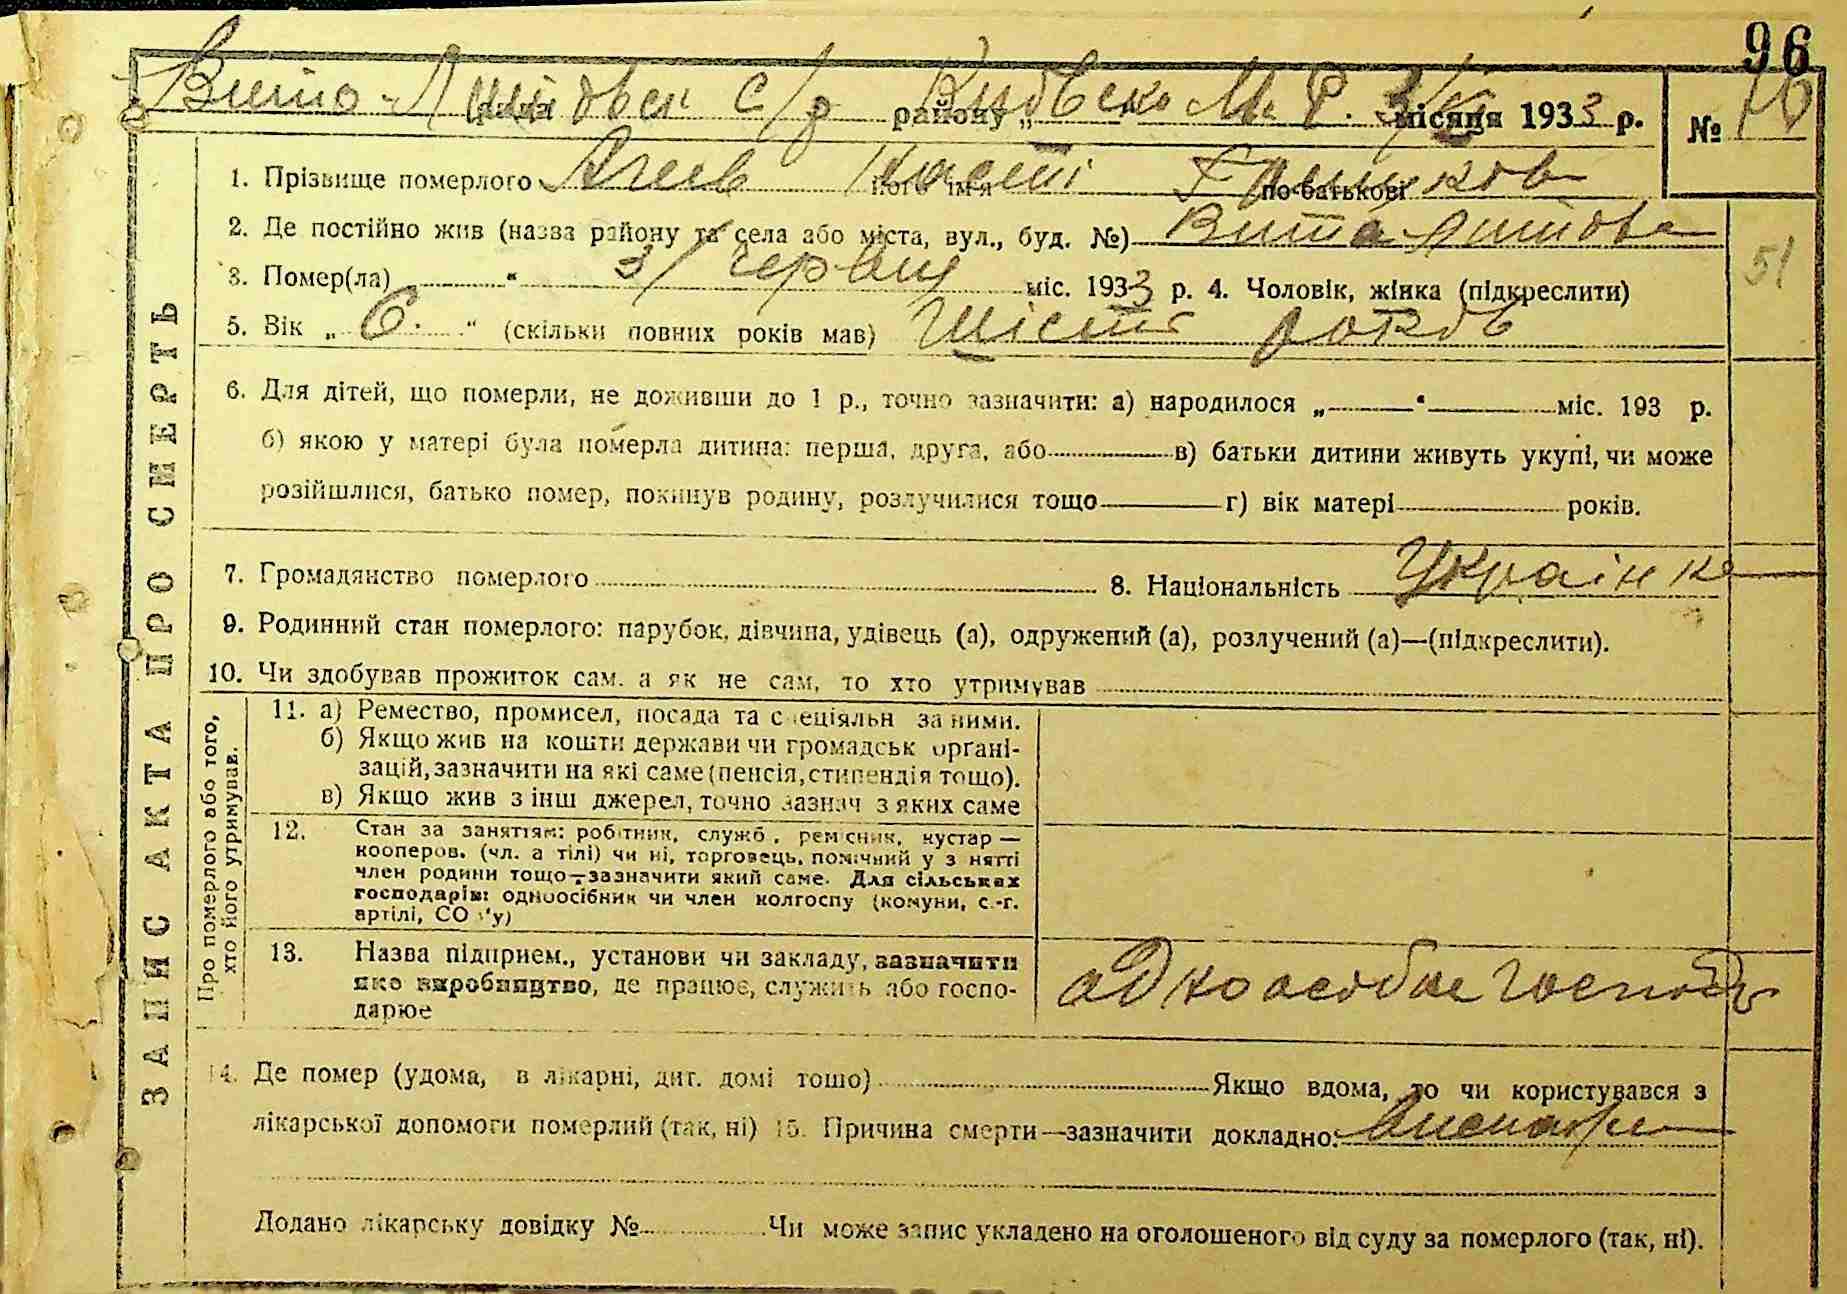 96
Вито-Литовськ с/р району „ Київсько М. Р. місяця 1933 р. №
1. Прізвище померлого його ім'я Насті по-батькові
2. Де постійно жив (назва району та села або міста, вул., буд. №) Вита Литовс
51
3. Помер(ла) “ 3/ червця міс. 1933 р. 4. Чоловік, жінка (підкреслити)
5. Вік „ 6. “ (скільки повних років мав) Шість років
6. Для дітей, що померли, не доживши до 1 р., точно зазначити: а) народилося „ “ міс. 193 р.
б) якою у матері була померла дитина: перша, друга, або в) батьки дитини живуть укупі, чи може
розійшлися, батько помер, покинув родину, розлучилися тощо г) вік матері років.
7. Громадянство померлого 8. Національність Українка
9. Родинний стан померлого: парубок, дівчина, удівець (а), одружений (а), розлучений (а)—(підкреслити).
10. Чи здобував прожиток сам. а як не сам, то хто утримував
11. а) Ремество, промисел, посада та спеціяльн за ними.
б) Якщо жив на кошти держави чи громадськ органі-
зацій, зазначити на які саме (пенсія, стипендія тощо).
в) Якщо жив з інш джерел, точно зазнач з яких саме
12. Стан за заняттям: робітник, служб., ремісник, кустар —
кооперов. (чл. а тілі) чи ні, торговець, помічний у з нятті
член родини тощо—зазначити який саме. Для сільських
господарів: одноосібник чи член колгоспу (комуни, с.-г.
артілі, СО у)
13. Назва підприєм., установи чи закладу, зазначити
яке виробництво, де працює, служить або госпо-
дарює
адноособне господ
14. Де помер (удома, в лікарні, дит. домі тощо) Якщо вдома, то чи користувався з
лікарської допомоги померлий (так, ні) 15. Причина смерти—зазначити докладно:
Додано лікарську довідку № Чи може запис укладено на оголошеного від суду за померлого (так, ні).
ЗАПИС АКТА ПРО СМЕРТЬ
Про померлого або того,
хто його утримував.